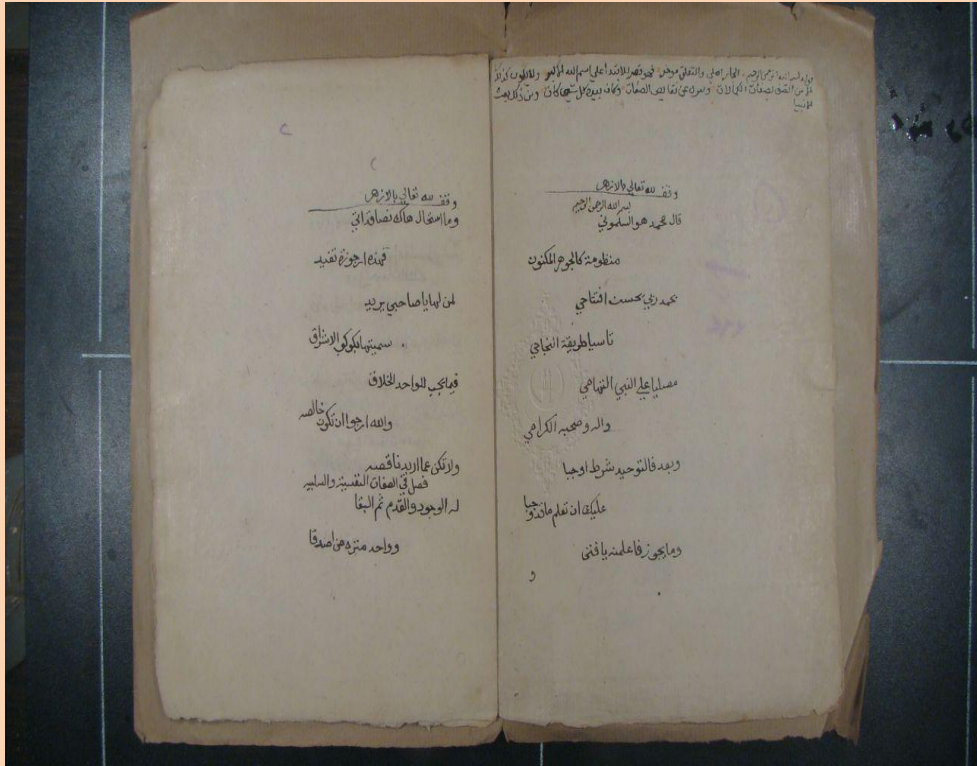 بسم الله الرحمن الرحيم الجار اصلي والتعلق فهو قصر للابتدا علي اسم الله
بصفات الكمالات عن نقايص الصفات وكان بيده كل شي كان ومن ذلك بعث
الانبيا
وقف لله تعالي بالازهر
بسم الله الرحمن الرحيم
قال محمد هو السلموني
منظومة كالجوهر المكنون
بحمد ربي بحسن افتتاحي
تاسيا طريقة النجاحي
مصليا علي النبي التهامي
واله وصحبه الكرامي
وبعد فالتوحيد شرط اوجبا
عليك ان تعلم ما قد وجبا
وما يجوز فاعلمنه يا فتى
و
وقف لله تعالي بالازهر
وما استحال هاك نصا قد اتي
فهذه ارجوزة تفيد
لمن لها يا صاحبي يريد
سميتها بكوكب الاشراق
فيما يجب للواحد الخلاق
والله ارجوا ان تكون خالصه
ولا تكن عما اريد ناقصه
فصل في الصفات النفسية والسلبيه
له الوجود والقدم ثم البقا
وواحد منزه من اصدقا